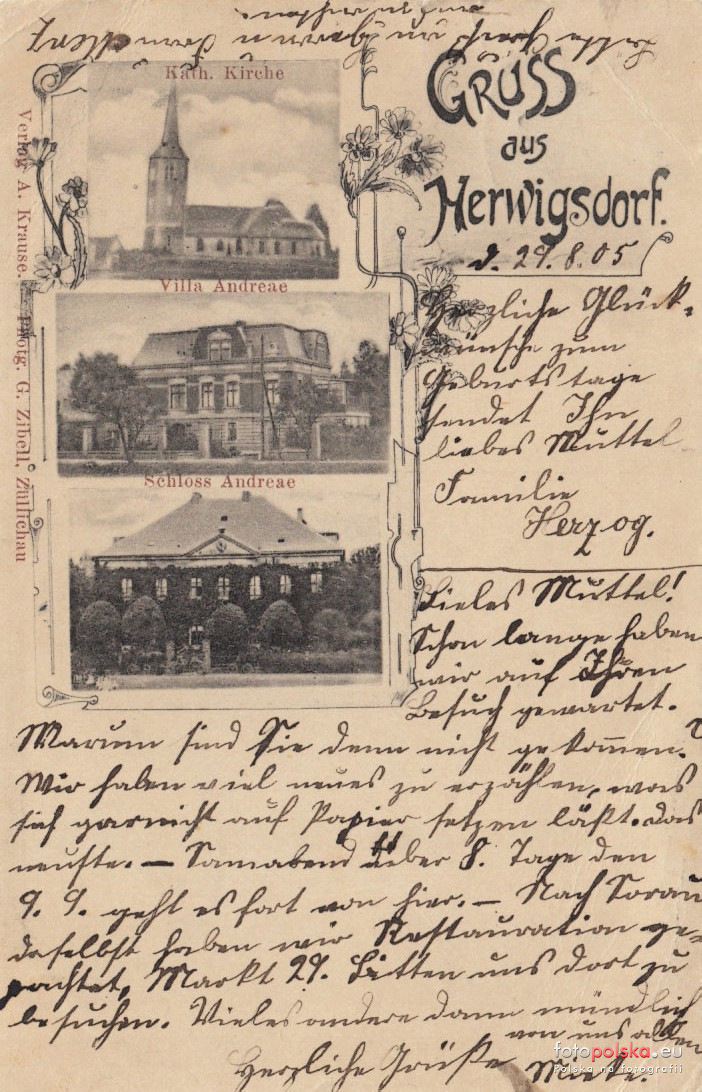 Kath. Kirche
Villa Andreae
Schloss Andreae
Verlag A. Krause. Photg. G. Zibell, Züllichau
GRUSS
aus
Herwigsdorf.
d. 29.8.05
Herzliche Glück-
wünsche zum
Geburtstage
sendet Ihn
liebes Muttel
Familie
Herzog.
Liebes Muttel!
Schon lange haben
wir auf Ihren
Besuch gewartet.
Warum sind Sie denn nicht gekommen.
Wir haben viel neues zu erzählen, was
sich garnicht auf Papier setzen läßt. das
neuste. — Sonnabend über 8. Tage den
9. 9. geht es fort von hier. — Nach Sorau
daselbst haben wir Restauration ge-
pachtet, Markt 29. Bitten uns dort zu
besuchen. Vieles andere dann mündlich
Herzliche Grüße von uns allen
fotopolska.eu
Polska na fotografii